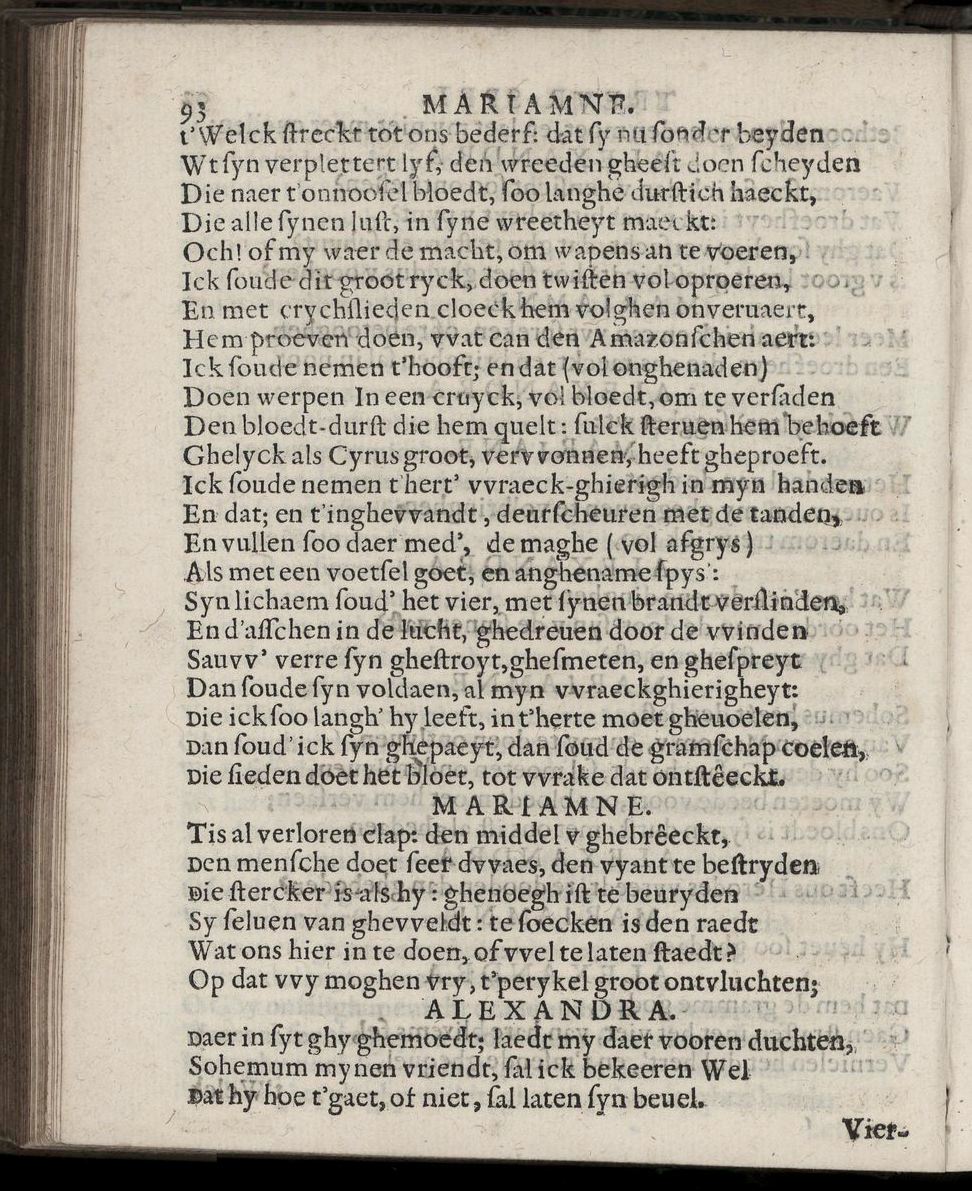 93 MARIAMNE.
t'Welck ſtreckt tot ons bederf: dat ſy nu ſonder beyden
Wt ſyn verplettert lyf, den wreeden gheeſt doen ſcheyden
Die naer t'onnooſel bloedt, ſoo langhe durſtich haeckt,
Die alle ſynen luſt, in ſyne wreetheyt maeckt:
Och! of my waer de macht, om wapens an te voeren,
Ick ſoude dit groot ryck, doen twiſten vol oproeren,
En met crychſlieden cloeck hem volghen onveruaert,
Hem proeven doen, vvat can den Amazonſchen aert:
Ick ſoude nemen t'hooft; en dat (vol onghenaden)
Doen werpen In een cruyck, vol bloedt, om te verſaden
Den bloedt-durſt die hem quelt: ſulck ſteruen hem behoeft
Ghelyck als Cyrus groot, vervvonnen, heeft gheproeft.
Ick ſoude nemen t'hert' vvraeck-ghierigh in myn handen
En dat; en t'inghevvandt, deurſcheuren met de tanden,
En vullen ſoo daer med', de maghe (vol afgrys)
Als met een voetſel goet, en anghename ſpys:
Syn lichaem ſoud' het vier, met ſynen brandt verſlinden,
En d'aſſchen in de lucht, ghedreuen door de vvinden
Sauvv' verre ſyn gheſtroyt, gheſmeten, en gheſpreyt
Dan ſoude ſyn voldaen, al myn vvraeckghierigheyt:
Die ick ſoo langh' hy leeft, in t'herte moet gheuoelen,
Dan ſoud' ick ſyn ghepaeyt, dan ſoud de gramſchap coelen,
Die ſieden doet het bloet, tot vvrake dat ontſtêeckt.
MARIAMNE.
Tis al verloren clap: den middel v ghebrêeckt,
Den menſche doet ſeer dvvaes, den vyant te beſtryden
Die ſtercker is als hy: ghenoegh iſt te beuryden
Sy ſeluen van ghevveldt: te ſoecken is den raedt
Wat ons hier in te doen, of vvel te laten ſtaedt?
Op dat vvy moghen vry, t'perykel groot ontvluchten;
ALEXANDRA.
Daer in ſyt ghy ghemoedt; laedt my daer vooren duchten,
Sohemum mynen vriendt, ſal ick bekeeren Wel
Dat hy hoe t'gaet, of niet, ſal laten ſyn beuel.
Vier-